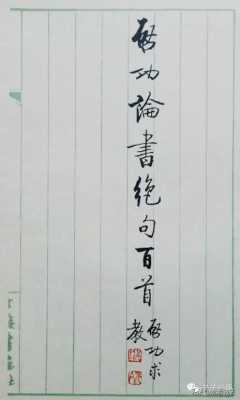 启功論書绝句百首
启功求教